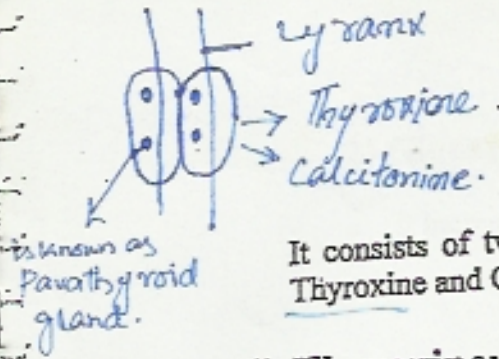 Lyranx
Thyroxione
Calcitonine.
is known as
Parathyroid
gland.
It consists of
Thyroxine and